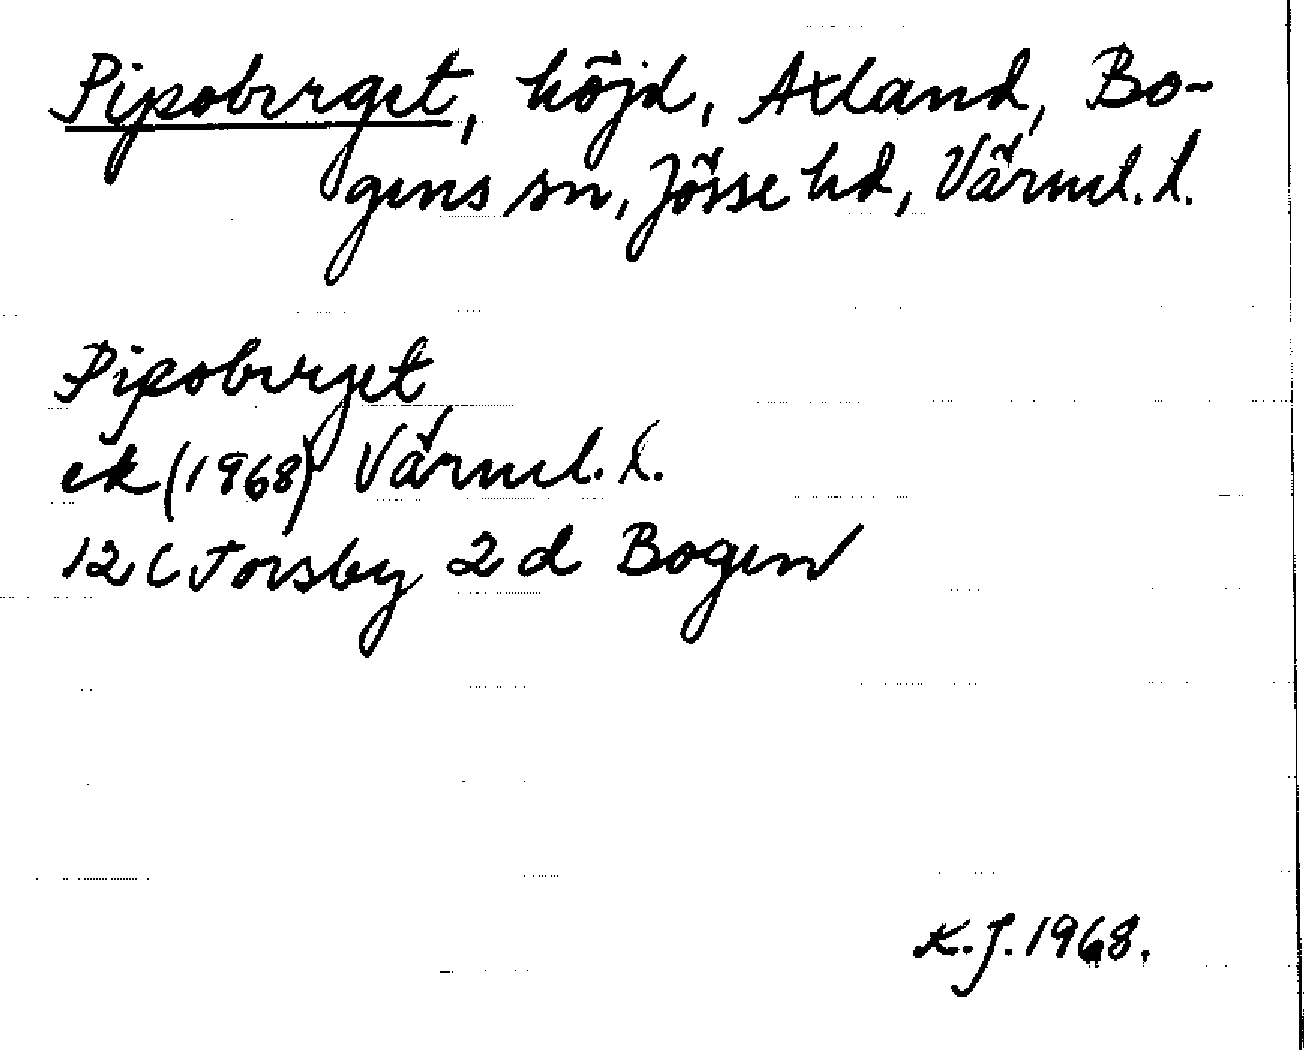 Pipoberget, höjd, Axland, Bo-
gens sn, Jösse hd, Värml. l.
Pipoberget
ek (1968) Värml. l.
12 C Torsby 2 d Bogen
K. J. 1968.